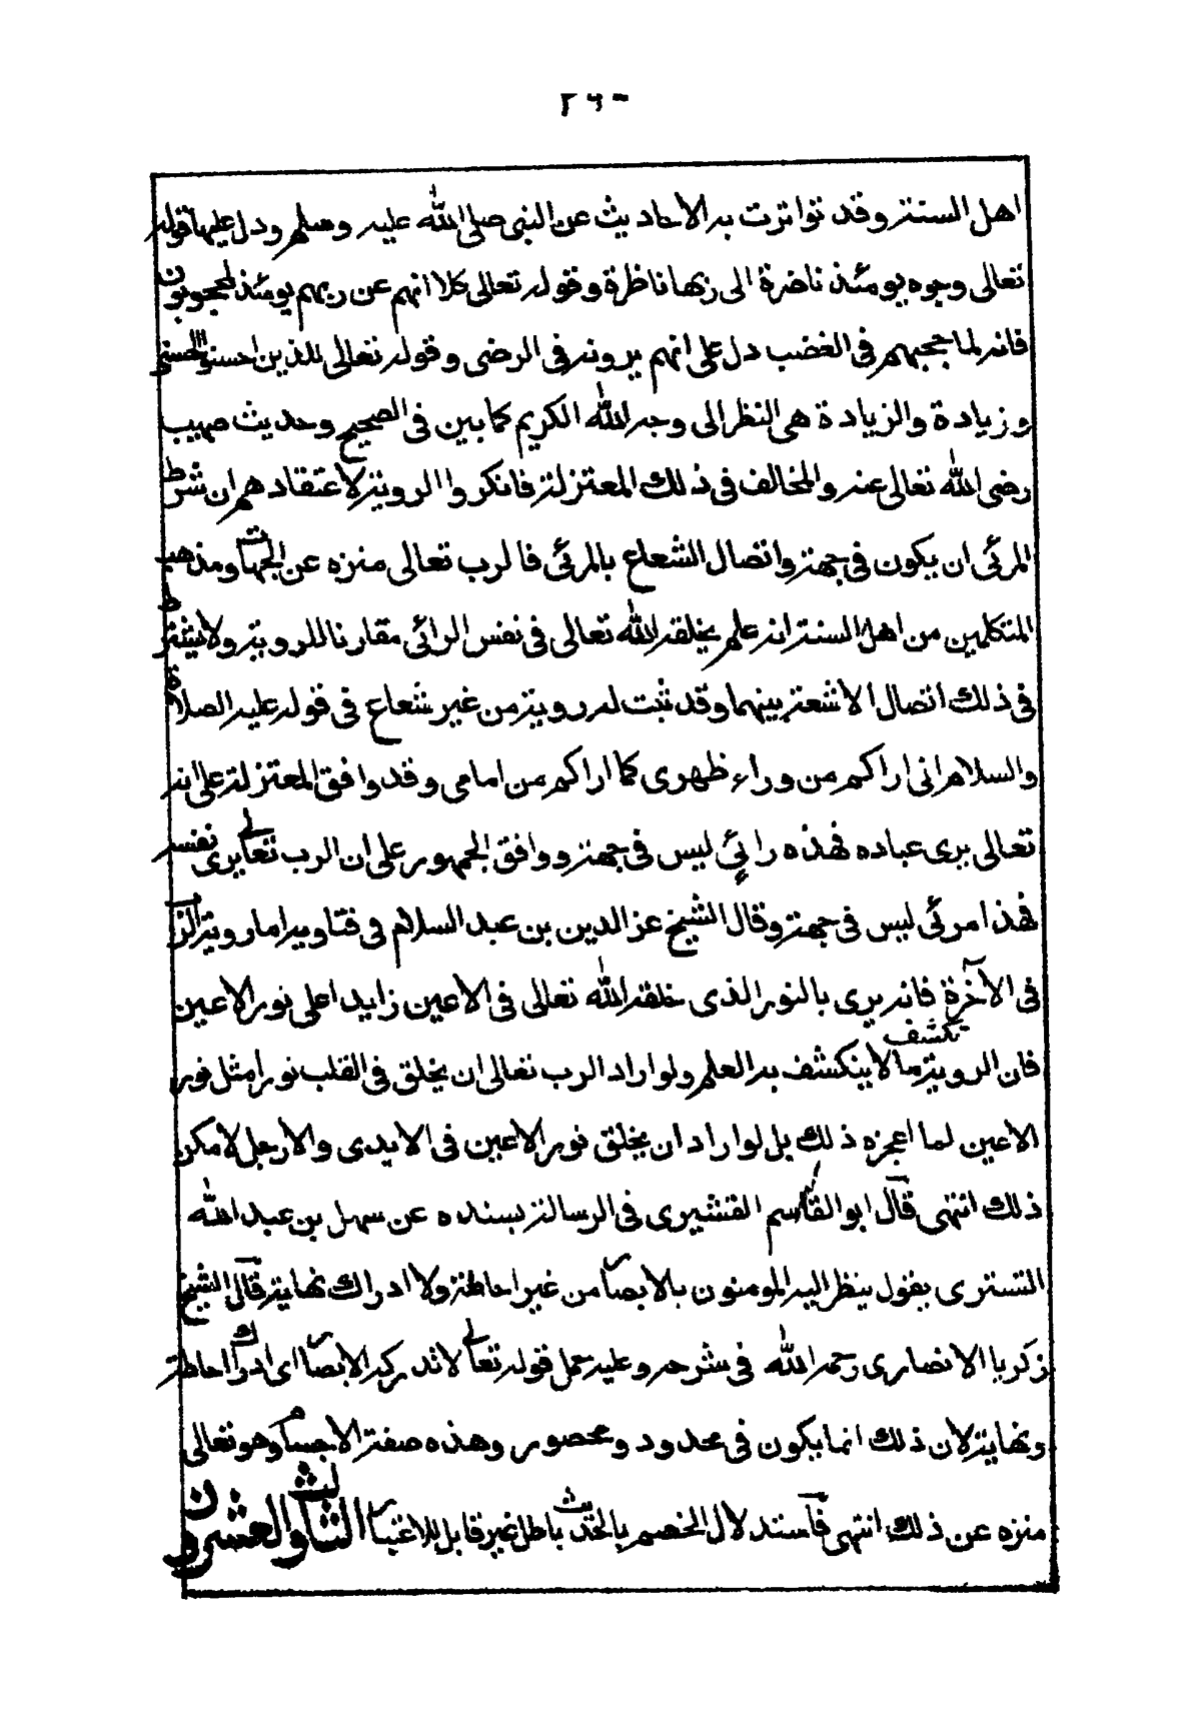 ٢٦٠
اهل السنة وقد تواترت به الاحاديث عن النبى صلى الله عليه وسلم ودل عليها قوله
تعالى وجوه يومئذ ناضرة الى ربها ناظرة وقوله تعالى كلا انهم عن ربهم يومئذ لمحجوبون
فانه لما حجبهم فى الغضب دل على انهم يرونه فى الرضى وقوله تعالى للذين احسنوا الحسنى
وزيادة والزيادة هى النظر الى وجه الله الكريم كما بين فى الصحيح وحديث صهيب
رضى الله تعالى عنه والمخالف فى ذلك المعتزلة فانكروا الروية لاعتقادهم ان شرط
المرئى ان يكون فى جهة واتصال الشعاع بالمرئى فالرب تعالى منزه عن الجهات ومذهب
المتكلمين من اهل السنة انه علم يخلقه الله تعالى فى نفس الرائى مقارنا للروية ولا يشترط
فى ذلك اتصال الاشعة بينهما وقد ثبت له روية من غير شعاع فى قوله عليه الصلاة
والسلام انى اراكم من وراء ظهرى كما اراكم من امامى وقد وافق المعتزلة على انه
تعالى يرى عباده فهذه رائى ليس فى جهة ووافق الجمهور على ان الرب تعالى يرى نفسه
فهذا مرئى ليس فى جهة وقال الشيخ عز الدين بن عبد السلام فى فتاويه اما روية الرب
فى الآخرة فانه يرى بالنور الذى خلقه الله تعالى فى الاعين زايدا على نور الاعين
تكشف
فان الروية ما لا ينكشف به العلم ولو اراد الرب تعالى ان يخلق فى القلب نورا مثل نور
الاعين لما اعجزه ذلك بل لو اراد ان يخلق نور الاعين فى الايدى والارجل لامكن
ذلك انتهى قال ابو القاسم القشيرى فى الرسالة بسنده عن سهل بن عبد الله
التسترى يقول ينظر اليه المومنون بالابصار من غير احاطة ولا ادراك نهاية قال الشيخ
زكريا الانصارى رحمه الله فى شرحه وعليه حمل قوله تعالى لا تدركه الابصار اى ادراك احاطة
ونهاية لان ذلك انما يكون فى محدود ومحصور وهذه صفة الاجسام وهو تعالى
منزه عن ذلك انتهى فاستدلال الخصم بالحديث باطل غير قابل للاعتبار الثالث والعشرون